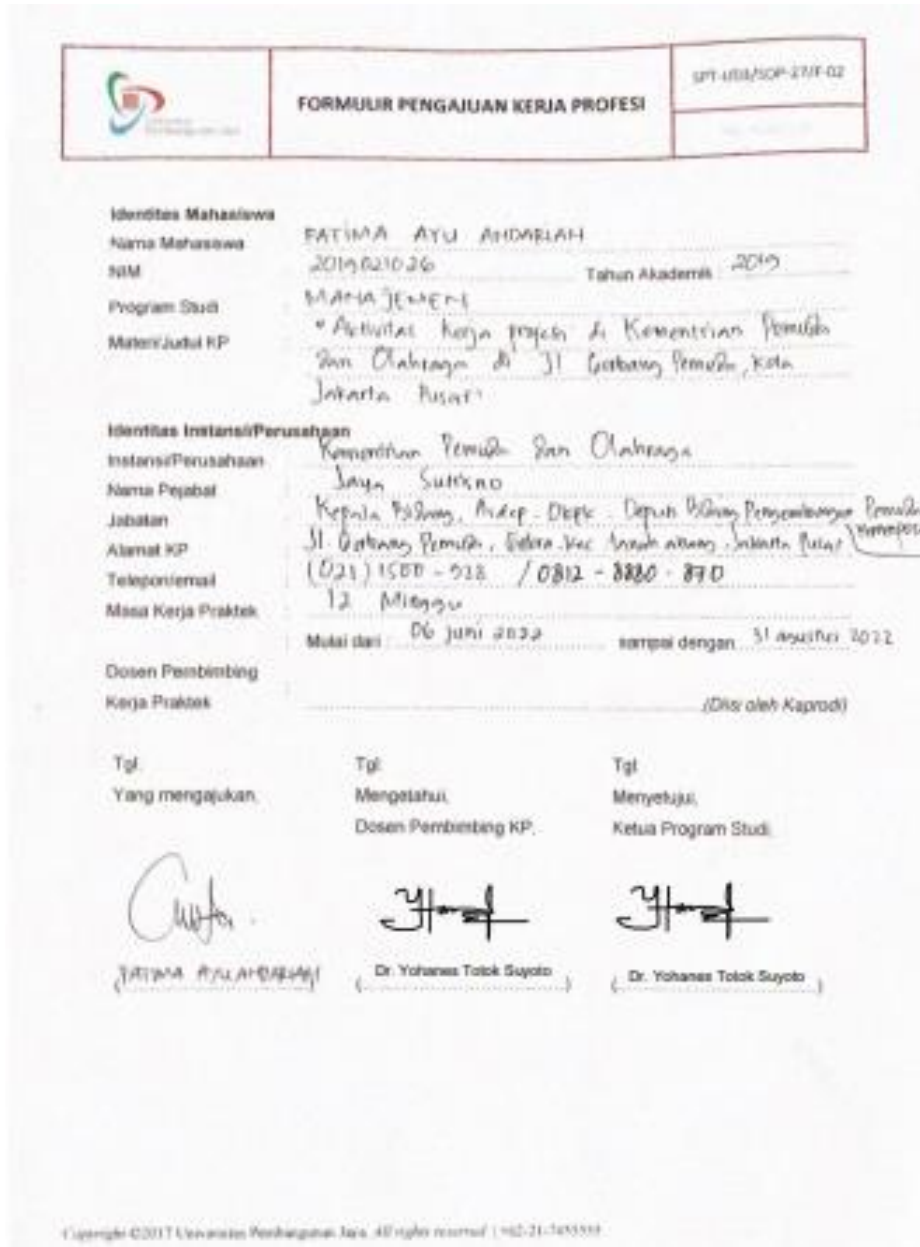 FORMULIR PENGAJUAN KERJA PROFESI
SPT-I/03/SOP-27/F-02
Identitas Mahasiswa
Nama Mahasiswa FATIMA AYU ANDARIAH
NIM 2019021026 Tahun Akademik 2019
Program Studi MANAJEMEN
Materi/Judul KP Activitas kerja profesi di Kementrian Pemuda
dan Olahraga di Jl Gerbang Pemuda, Kota
Jakarta Pusat
Identitas Instansi/Perusahaan
Instansi/Perusahaan Kementrian Pemuda dan Olahraga
Nama Pejabat Jaya Sutrisno
Jabatan Kepala Bidang, Deputi Bidang Pengembangan Pemuda
Alamat KP Jl. Gerbang Pemuda, Gelora, Kec Tanah abang, Jakarta Pusat
Telepon/email (021) 1500 - 928 / 0812 - 8880 - 870
Masa Kerja Praktek 12 Minggu
Mulai dari : 06 Juni 2022 sampai dengan 31 agustus 2022
Dosen Pembimbing
Kerja Praktek (Diisi oleh Kaprodi)
Tgl. Tgl. Tgl
Yang mengajukan, Mengetahui, Menyetujui,
Dosen Pembimbing KP, Ketua Program Studi,
FATIMA AYU ANDARIAH ( Dr. Yohanes Totok Suyoto ) ( Dr. Yohanes Totok Suyoto )
Copyright ©2017 Universitas Pembangunan Jaya. All rights reserved | +62-21-7455555